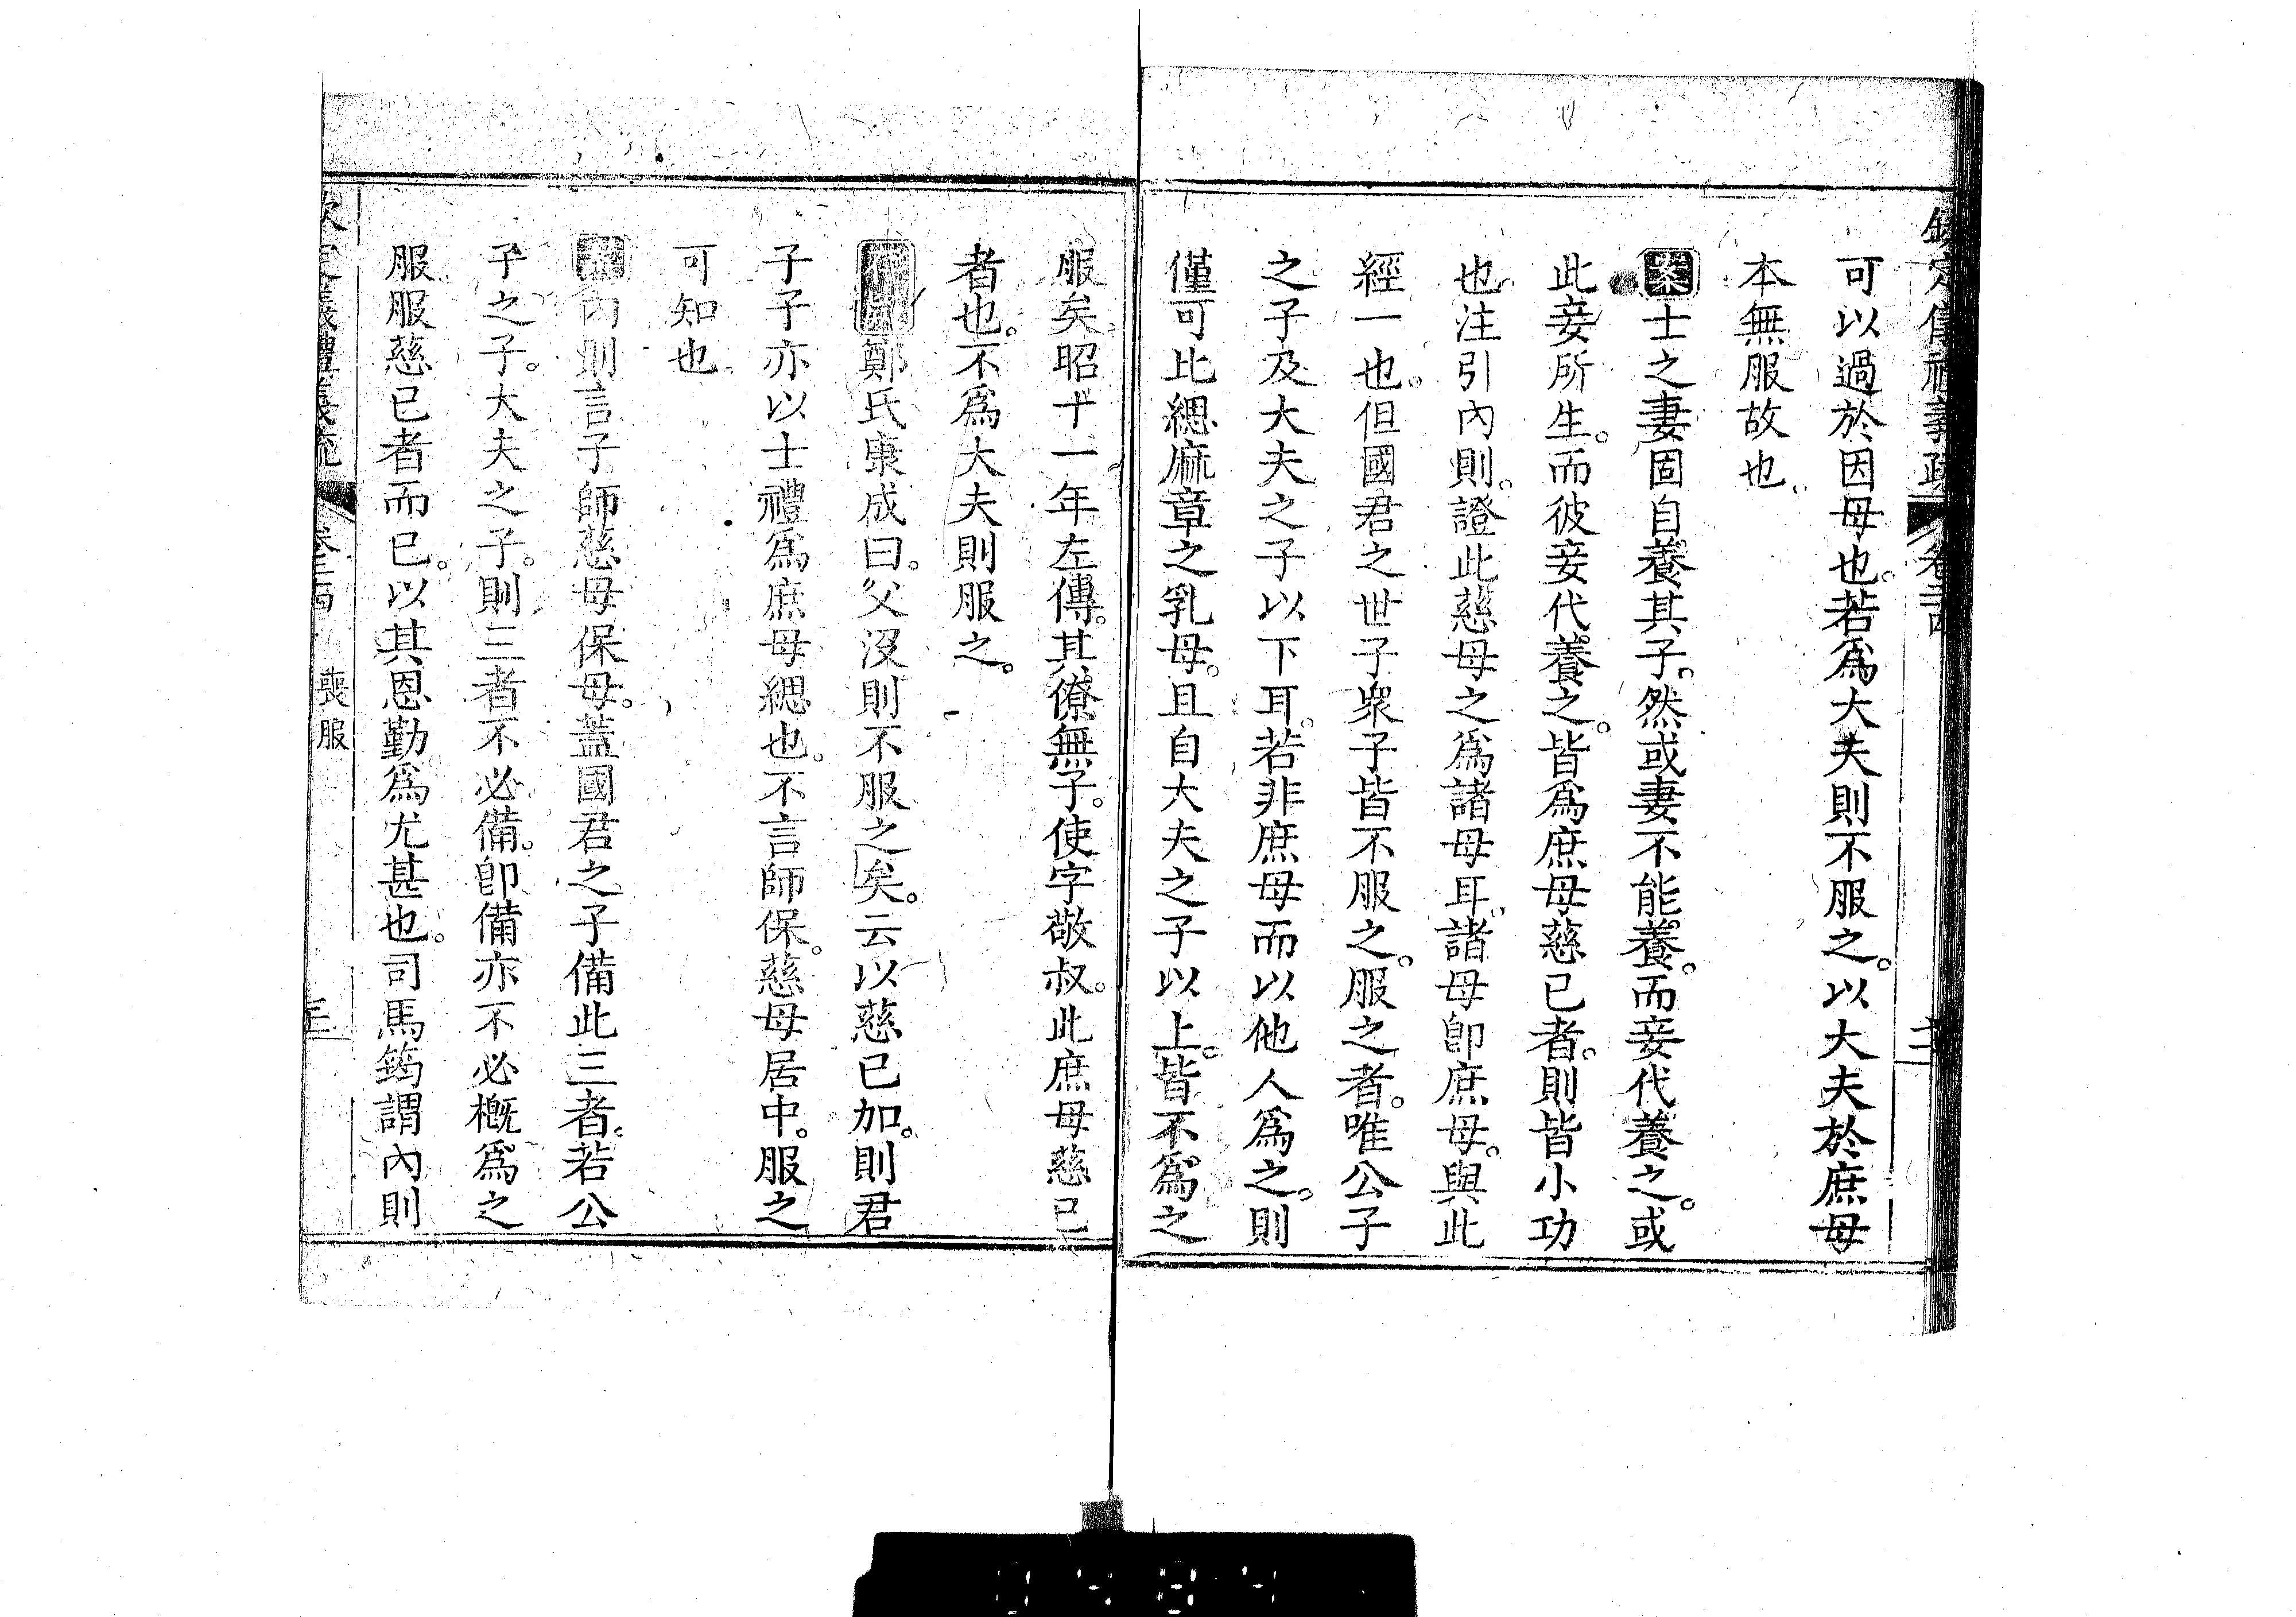 欽定儀禮義疏 卷二十四
可以過於因母也。若爲大夫則不服之。以大夫於庶母
本無服故也。
案士之妻固自養其子。然或妻不能養。而妾代養之。或
此妾所生。而彼妾代養之。皆爲庶母慈已者。則皆小功
也。注引內則。證此慈母之爲諸母耳。諸母卽庶母。與此
經一也。但國君之世子衆子皆不服之。服之者。唯公子
之子及大夫之子以下耳。若非庶母而以他人爲之。則
僅可比緦麻章之乳母。且自大夫之子以上。皆不爲之
服矣。昭十一年左傳。其僚無子。使字敬叔。此庶母慈已
者也。不爲大夫則服之。
鄭氏康成曰。父沒則不服之矣。云以慈已加。則君
子子亦以士禮爲庶母緦也。不言師保。慈母居中。服之
可知也
案內則言子師慈母保母。蓋國君之子備此三者。若公
子之子。大夫之子。則三者不必備。卽備亦不必槪爲之
服。服慈已者而已。以其恩勤爲尤甚也。司馬筠謂內則
欽定儀禮義疏 喪服